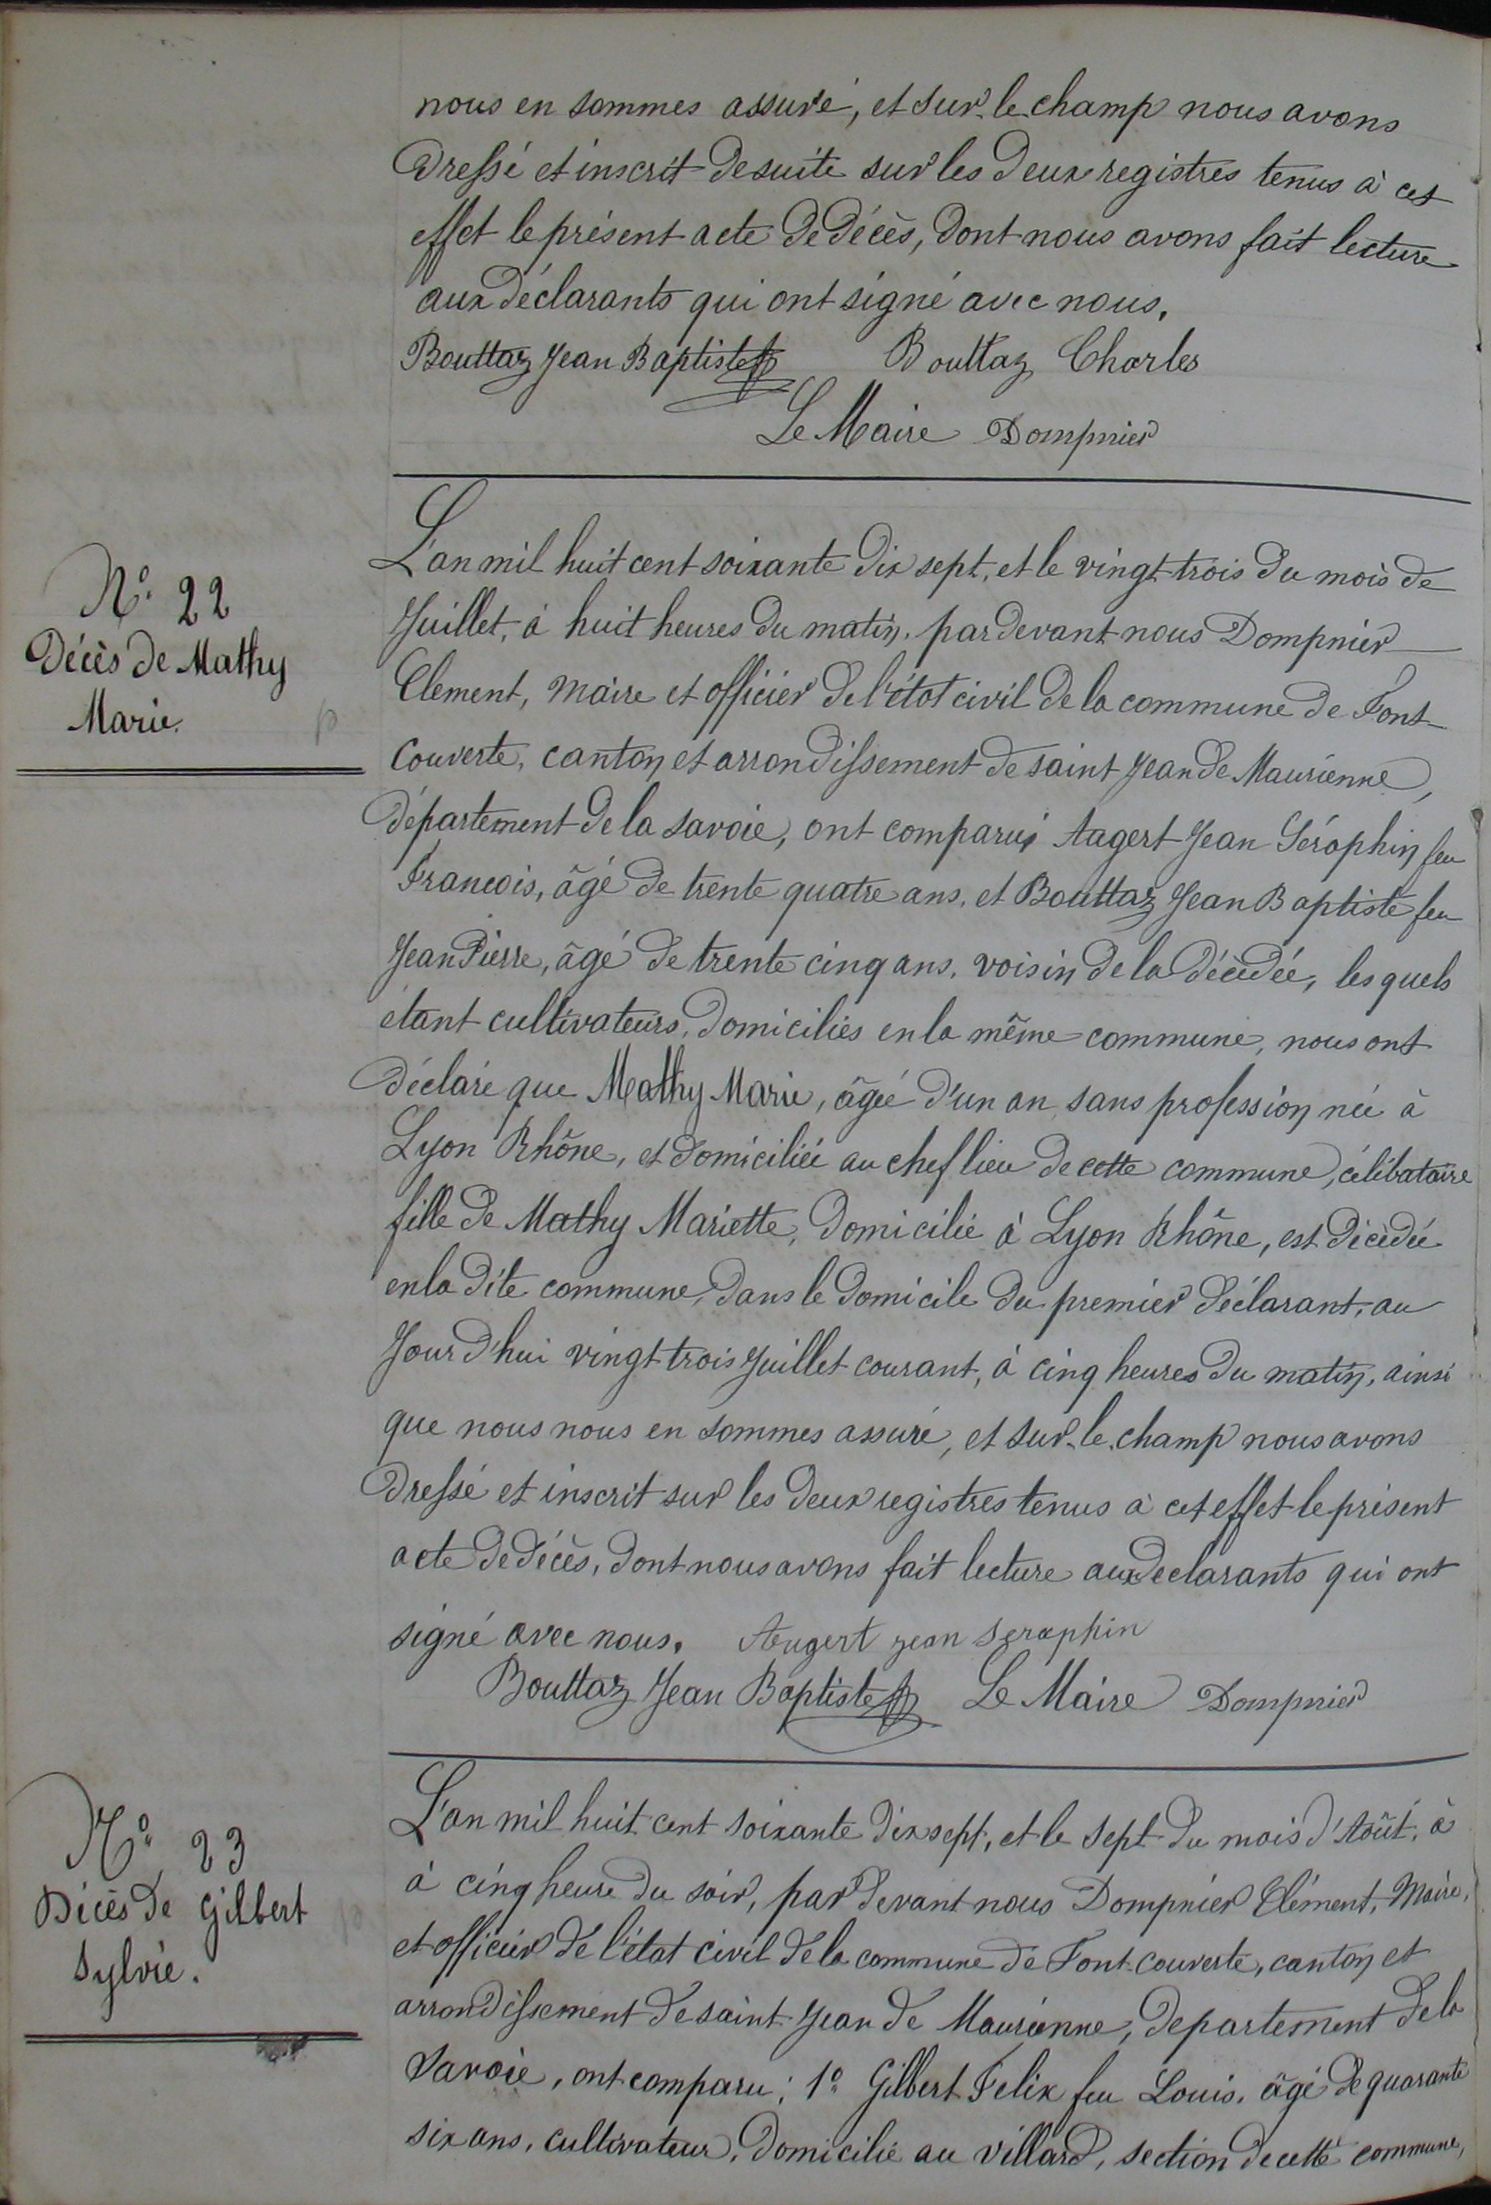 nous en sommes assuré, et sur-le-champ nous avons
Dressé et inscrit de suite sur les deux registres tenus à cet
effet le présent acte de décès, dont nous avons fait lecture
aux déclarants qui ont signé avec nous.
Bouttaz Jean Baptiste Bouttaz Charles
Le Maire Dompnier
N° 22
Décès de Mathy
Marie.
L'an mil huit cent soixante dix sept, et le vingt-trois du mois de
Juillet, à huit heures du matin, pardevant nous Dompnier
Clement, Maire et officier de l'état civil de la commune de Font
Couverte, canton et arrondissement de saint Jean de Maurienne,
département de la Savoie, ont comparus Augert Jean Séraphin feu
Francois, âgé de trente quatre ans, et Bouttaz Jean Baptiste feu
Jean Pierre, âgé de trente cinq ans, voisin de la décèdée, les quels
étant cultivateurs, domiciliés en la même commune, nous ont
déclaré que Mathy Marie, âgée d'un an, sans profession née à
Lyon Rhône, et domiciliée au chef lieu de cette commune, célibataire
fille de Mathy Mariette, domicilié à Lyon Rhône, est décèdée
en la dite commune, dans le domicile du premier déclarant, au
Jourd'hui vingt trois Juillet courant, à cinq heures du matin, ainsi
que nous nous en sommes assuré, et sur-le-champ nous avons
Dressé et inscrit sur les deux registres tenus à cet effet le présent
acte de décès, dont nous avons fait lecture aux declarants qui ont
signé avec nous. Augert jean Seraphin
Bouttaz Jean Baptiste Le Maire Dompnier
N° 23
Décès de Gilbert
Sylvie.
L'an mil huit cent soixante dix sept, et le sept du mois d'Août, à
à cinq heure du soir, par devant nous Dompnier Clément, Maire,
et officier de l'état civil de la commune de Font-couverte, canton et
arrondissement de saint-Jean de Maurienne, departement de la
Savoie, ont comparu; 1° Gilbert Felix feu Louis, âgé de quarante
six ans, cultivateur, domicilié au villard, section de cette commune,